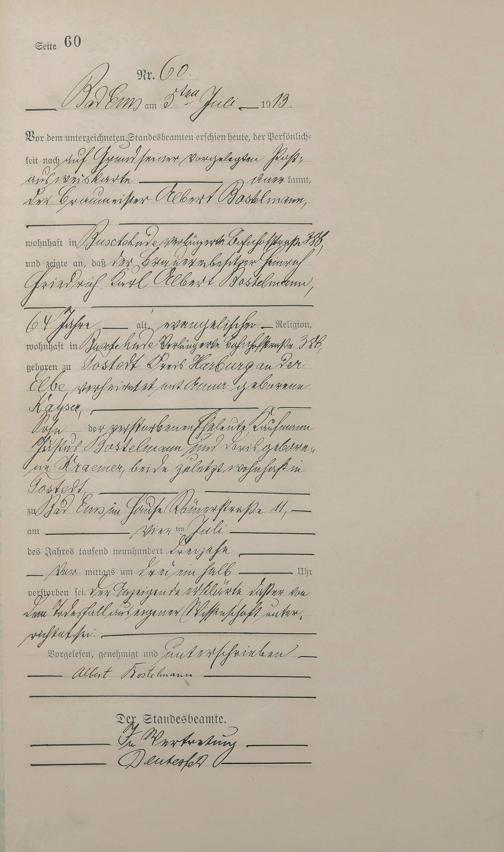 Seite 60
Nr. 60.
Bad Ems am 5ten Juli 1913.
Vor dem unterzeichneten Standesbeamten erschien heute, der Persönlich-
keit nach auf Grund seiner vorgelegten Post-
ausweiskarte anerkannt,
der Braumeister Albert Bostelmann,
wohnhaft in Buxtehude verlängerte Bahnhofstraße 388,
und zeigte an, daß der Brauereibesitzer Heinrich
Friedrich Karl Albert Bostelmann,
64 Jahre alt, evangelischer Religion,
wohnhaft in Buxtehude Verlängerte Bahnhofstraße 388,
geboren zu Tostedt Kreis Harburg an der
Elbe, verheiratet mit Anna geborene
Kayser,
Sohn der verstorbenen Eheleute Kaufmann
Justus Bostelmann und Doris gebore-
ne Kraemer, beide zuletzt wohnhaft in
Tostedt,
zu Bad Ems im Hause Römerstraße 11,
am vierten Juli
des Jahres tausend neunhundert dreizehn
Vor mittags um drei ein halb Uhr
verstorben sei. Der Anzeigende erklärte daß er von
dem Todesfall aus eigener Wissenschaft unter-
richtet sei.
Vorgelesen, genehmigt und unterschrieben
Albert Bostelmann
Der Standesbeamte.
In Vertretung